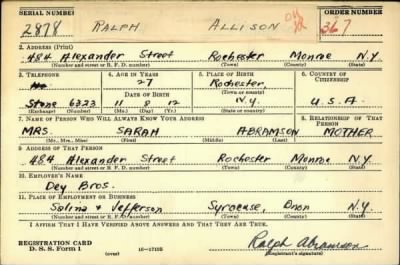 SERIAL NUMBER 1. NAME (Print) ORDER NUMBER
2878 RALPH ALLISON 367
2. ADDRESS (Print)
484 Alexander Street Rochester Monroe N.Y.
(Number and street or R. F. D. number) (Town) (County) (State)
3. TELEPHONE 4. AGE IN YEARS 5. PLACE OF BIRTH 6. COUNTRY OF CITIZENSHIP
27 Rochester,
DATE OF BIRTH (Town or county)
Stone 6323 11 8 12 N.Y. U.S.A.
(Exchange) (Number) (Mo.) (Day) (Yr.) (State or country)
7. NAME OF PERSON WHO WILL ALWAYS KNOW YOUR ADDRESS 8. RELATIONSHIP OF THAT PERSON
MRS. SARAH ABRAMSON MOTHER
(Mr., Mrs., Miss) (First) (Middle) (Last)
9. ADDRESS OF THAT PERSON
484 Alexander Street Rochester Monroe N.Y.
(Number and street or R. F. D. number) (Town) (County) (State)
10. EMPLOYER'S NAME
Dey Bros.
11. PLACE OF EMPLOYMENT OR BUSINESS
Salina & Jefferson Syracuse, Onon N.Y.
(Number and street or R. F. D. number) (Town) (County) (State)
I AFFIRM THAT I HAVE VERIFIED ABOVE ANSWERS AND THAT THEY ARE TRUE.
REGISTRATION CARD
D. S. S. Form 1 16—17105 Ralph Abramson
(over) (Registrant's signature)